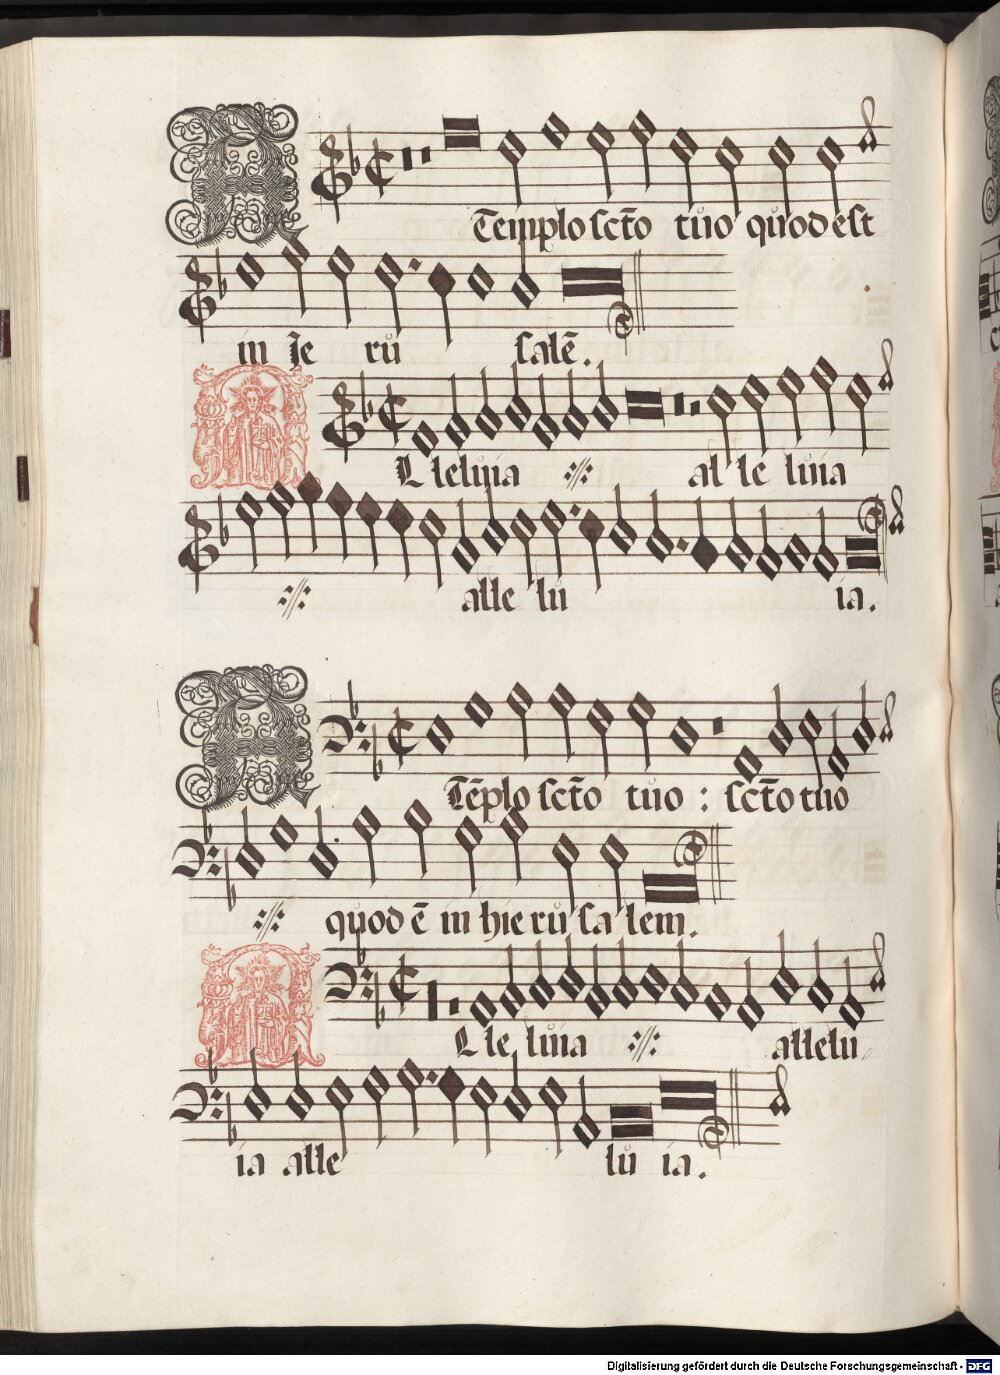 A Templo sctō tuo quod est
in Je ru salē.
A Lleluia ·//· al le luia
·//· alle lu ia.
A Tēplo sctō tuo : sctō tuo
·//· quod ē in hie ru sa lem.
A Lle luia ·//· allelu
ia alle lu ia.
Digitalisierung gefördert durch die Deutsche Forschungsgemeinschaft - DFG